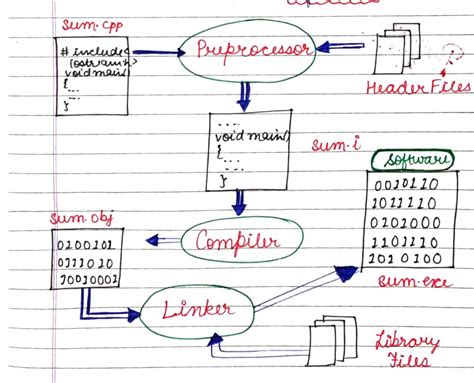 Sum.cpp
# include<
iostream.h>
void main()
{
...
...
}
Preprocessor
Header Files
....
void main()
{
...
...
}
Sum.i
Software
0010110
1011110
0101000
1101110
1010100
Sum.exe
Sum.obj
0100101
0111010
10010001
Compiler
Linker
Library
Files